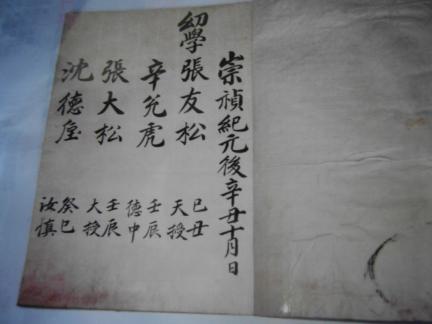 崇禎紀元後辛丑十月日
幼學張友松 己丑 天授
辛允虎 壬辰 德中
張大松 壬辰 大授
沈德垕 癸巳 汝慎